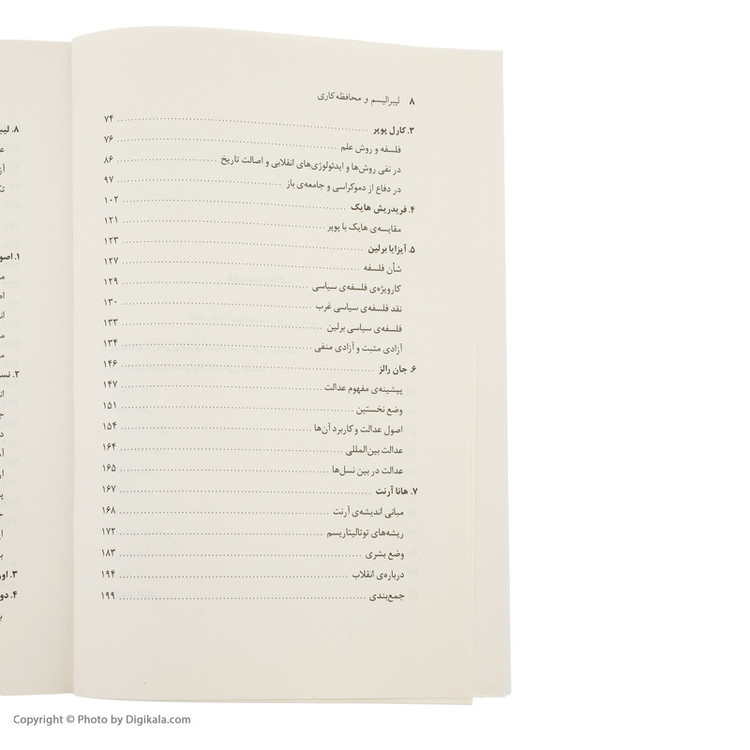 ۸ لیبرالیسم و محافظه‌کاری
۳. کارل پوپر ۷۴
فلسفه و روش علم ۷۶
در نفی روش‌ها و ایدئولوژی‌های انقلابی و اصالت تاریخ ۸۶
در دفاع از دموکراسی و جامعه‌ی باز ۹۷
۴. فریدریش هایک ۱۰۲
مقایسه‌ی هایک با پوپر ۱۲۱
۵. آیزایا برلین ۱۲۳
شأن فلسفه ۱۲۷
کارویژه‌ی فلسفه‌ی سیاسی ۱۲۹
نقد فلسفه‌ی سیاسی غرب ۱۳۰
فلسفه‌ی سیاسی برلین ۱۳۳
آزادی مثبت و آزادی منفی ۱۳۴
۶. جان رالز ۱۴۶
پیشینه‌ی مفهوم عدالت ۱۴۷
وضع نخستین ۱۵۱
اصول عدالت و کاربرد آن‌ها ۱۵۴
عدالت بین‌المللی ۱۶۴
عدالت در بین نسل‌ها ۱۶۵
۷. هانا آرنت ۱۶۷
مبانی اندیشه‌ی آرنت ۱۶۸
ریشه‌های توتالیتاریسم ۱۷۲
وضع بشری ۱۸۳
درباره‌ی انقلاب ۱۹۴
جمع‌بندی ۱۹۹
۸.
۱.
۲.
۳.
۴.
Copyright © Photo by Digikala.com